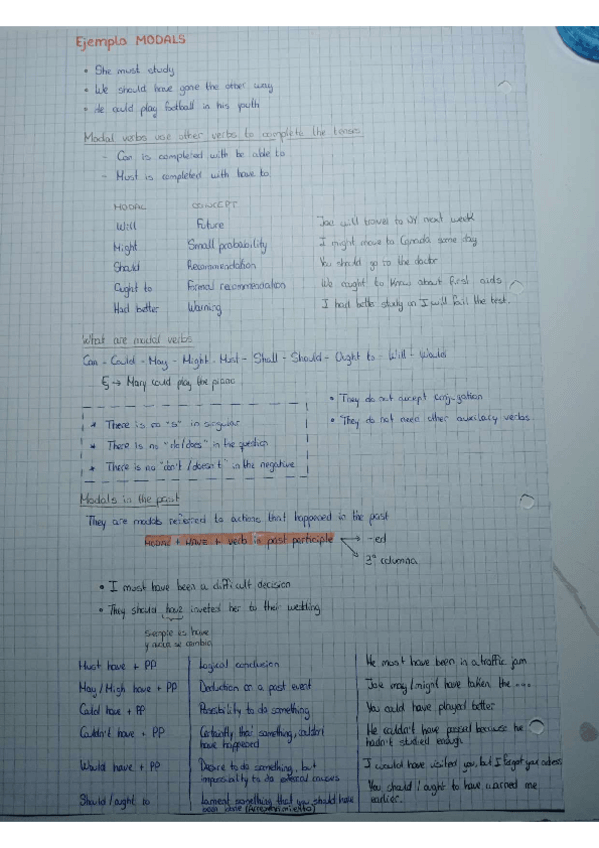 Ejemplo MODALS
• She must study
• We should have gone the other way
• He could play football in his youth
Modal verbs use other verbs to complete the tenses
- Can is completed with be able to
- Must is completed with have to
MODAL CONCEPT
Will Future Joe will travel to NY next week
Might Small probability I might move to Canada some day
Should Recommendation You should go to the doctor
Ought to Formal recommendation We ought to know about first aids
Had better Warning I had better study or I will fail the test.
What are modal verbs
Can - Could - May - Might - Must - Shall - Should - Ought to - Will - Would
↳ → Mary could play the piano
• They do not accept conjugation
• They do not need other auxiliary verbs
* There is no "s" in singular
* There is no "do/does" in the question
* There is no "don't/doesn't" in the negative
Modals in the past
They are modals referred to actions that happened in the past
MODAL + HAVE + verb in past participle → -ed
→ 3ª columna
• I must have been a difficult decision
• They should have inveted her to their wedding
siempre es have
y nunca se cambia
Must have + PP Logical conclusion He must have been in a traffic jam
May/High have + PP Deduction on a past event Joe may/might have taken the ...
Could have + PP Possibility to do something You could have played better
Couldn't have + PP Certainty that something couldn't have happened He couldn't have passed because he hadn't studied enough
Would have + PP Desire to do something, but impossibility to do external causes I would have visited you, but I forgot your adress
Should/ought to Lament something that you should have been done (Arrepentimiento) You should/ought to have warned me earlier.